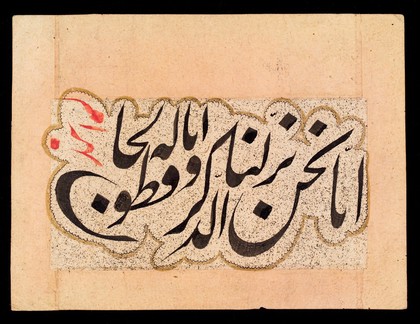 انّا نحن نزّلنا الذّكر و انا له لحافظون